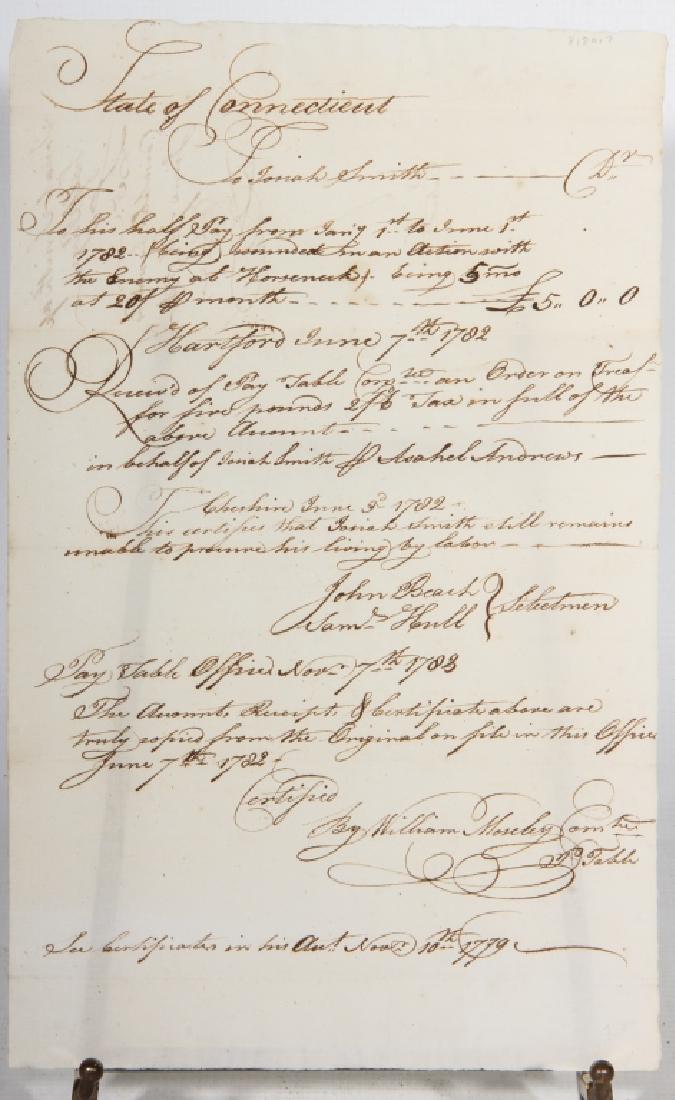 State of Connecticut
To Josiah Smith - - - - Dr
To his half Pay from Jany 1st to June 1st
1782 - (being wounded in an Action with
the Enemy at Horseneck) - being 5 mo
at 20/ ⅌ month - - - - - - £5 ,, 0 ,, 0
Hartford June 7th 1782
Receiv'd of Pay Table an Order on Treasr
for five pounds 2/6 Tax in full of the
above Account - - - -
in behalf of Josiah Smith ⅌ Asahel Andrews -
Cheshire June 3d 1782 -
This certifies that Josiah Smith still remains
unable to procure his living by labor - -
John Beach
Samll Hull } Selectmen
Pay Table Office Novr 7th 1783
The Accounts, Receipts, & Certificate above are
truly copied from the Original on file in this Office
June 7th 1782 -
Certified
By William Moseley Comtee
Pd Table
See Certificates in his Acct Novr 10th 1779 -